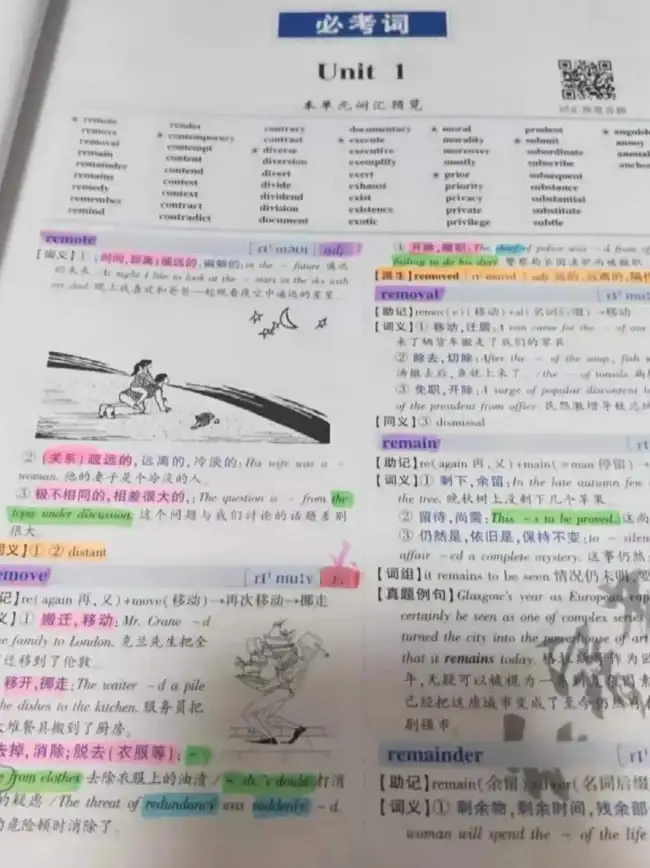 必考词
Unit 1
本单元词汇预览
remote render contrary documentary moral prudent
remove contemporary contrast execute morality submit annoy
removal contempt diverse executive moreover subordinate
remain content diversion exemplify mostly subscribe
remainder contend divert exert prior subsequent
remains contest divide exhaust priority substance
remedy context dividend exist privacy substantial
remember contract division existence private substitute
remind contradict document exotic privilege subtle
remote adj.
【词义】① (时间,距离)遥远的,偏僻的: in the ~ future 遥远
的未来 /At night I like to look at the ~ stars in the sky with
my dad. 晚上我喜欢和爸爸一起观看夜空中遥远的星星。
② (关系)疏远的,远离的,冷淡的: His wife was a ~
woman. 他的妻子是个冷淡的人。
③ 极不相同的,相差很大的: The question is ~ from the
topic under discussion. 这个问题与我们讨论的话题差别
很大。
词义】① ② distant
emove [rɪˈmuːv] v.
记】re(again 再,又)+move(移动)→再次移动→挪走
义】① 搬迁,移动: Mr. Crane ~d
family to London. 克兰先生把全
迁移到了伦敦。
移开,挪走: The waiter ~d a pile
the dishes to the kitchen. 服务员把
堆餐具搬到了厨房。
去掉,消除;脱去(衣服等): ~
from clothes 去除衣服上的油渍 / ~ sb.'s doubt 打消
的疑虑 /The threat of redundancy was suddenly ~d.
危险顿时消除了。
① 开除,撤职: The chief of police was ~d from
failing to do his duty. 警察局长因渎职而被撤职
【派生】removed adj. 远的,远离的;隔
removal
【助记】remov(e)(移动)+al(名词后缀)→移动
【词义】① 移动,迁居: A van came for the ~ of our
来了辆货车搬走了我们的家具
② 除去,切除: After the ~ of the soup, fish
汤撤去后,鱼端上来了。/the ~ of tonsils
③ 免职,开除: A surge of popular discontent
of the president from office.
【同义】③ dismissal
remain
【助记】re(again 再,又)+main(=man 停留)→
【词义】① 剩下,余留: In the late autumn few
the tree. 晚秋树上没剩下几个苹果。
② 留待,尚需: This ~s to be proved.
③ 仍然是,依旧是,保持不变: to ~ silent
affair ~ed a complete mystery. 这事仍然
【词组】it remains to be seen 情况仍未明
【真题例句】Glasgow's year as European
certainly be seen as one of complex series
turned the city into the powerhouse of art
that it remains today.
年,无疑可以被视为
已经把这座城市变成了至今仍然
剧强市。
remainder
【助记】remain(余留) (名词后缀
【词义】① 剩余物,剩余时间,残余部
woman will spend the ~ of the life